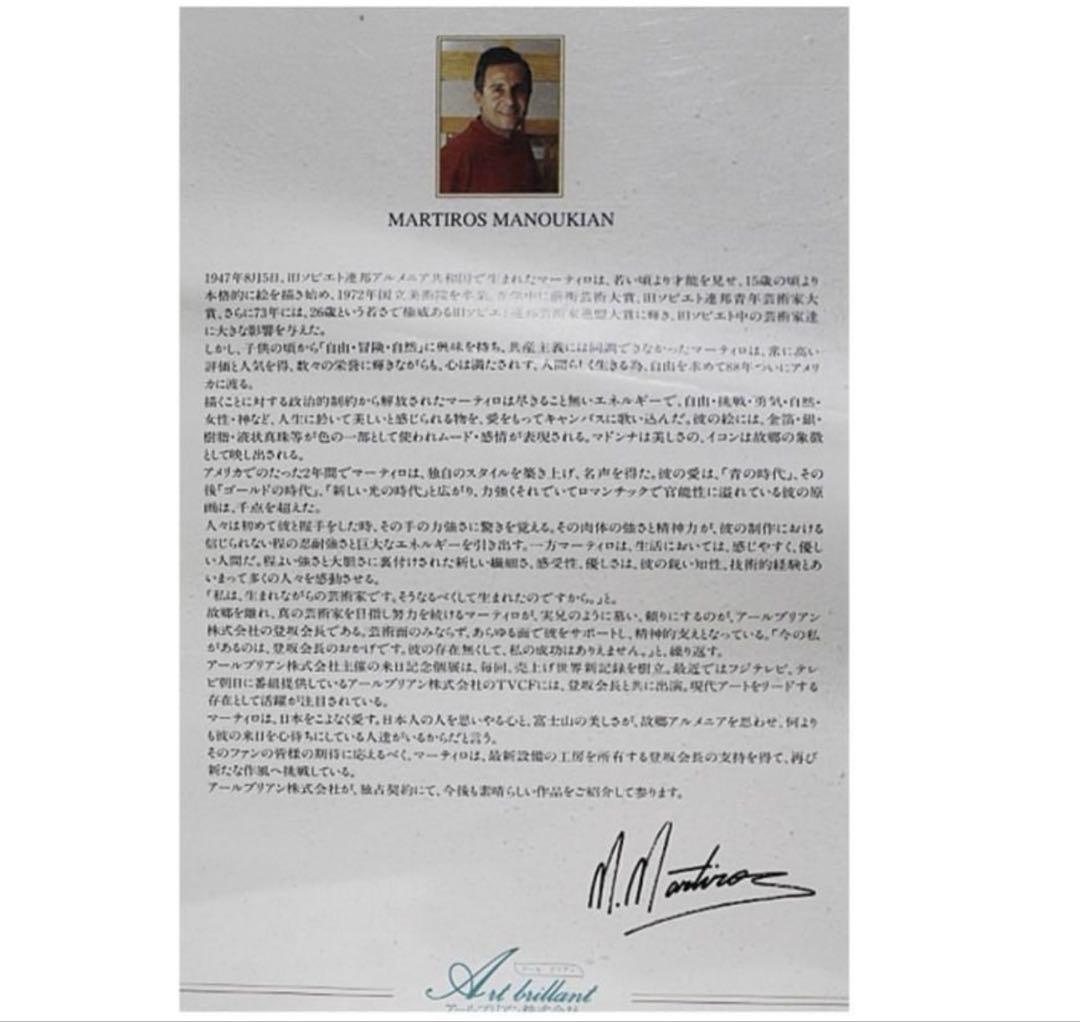 MARTIROS MANOUKIAN
1947年8月15日、旧ソビエト連邦アルメニア共和国で生まれたマーティロは、若い頃より才能を見せ、15歳の頃より
本格的に絵を描き始め、1972年国立美術院を卒業。在学中に前衛芸術大賞、旧ソビエト連邦青年芸術家大
賞、さらに73年には、26歳という若さで権威ある旧ソビエト連邦芸術家連盟大賞に輝き、旧ソビエト中の芸術家達
に大きな影響を与えた。
しかし、子供の頃から「自由・冒険・自然」に興味を持ち、共産主義には同調できなかったマーティロは、常に高い
評価と人気を得、数々の栄誉に輝きながらも、心は満たされず、人間らしく生きる為、自由を求めて88年ついにアメリ
カに渡る。
描くことに対する政治的制約から解放されたマーティロは尽きること無いエネルギーで、自由・挑戦・勇気・自然・
女性・神など、人生に於いて美しいと感じられる物を、愛をもってキャンバスに歌い込んだ。彼の絵には、金箔・銀・
樹脂・液状真珠等が色の一部として使われムード・感情が表現される。マドンナは美しさの、イコンは故郷の象徴
として映し出される。
アメリカでのたった2年間でマーティロは、独自のスタイルを築き上げ、名声を得た。彼の愛は、「青の時代」、その
後「ゴールドの時代」、「新しい光の時代」と広がり、力強くそれでいてロマンチックで官能性に溢れている彼の原
画は、千点を超えた。
人々は初めて彼と握手をした時、その手の力強さに驚きを覚える。その肉体の強さと精神力が、彼の制作における
信じられない程の忍耐強さと巨大なエネルギーを引き出す。一方マーティロは、生活においては、感じやすく、優し
い人間だ。程よい強さと大胆さに裏付けされた新しい繊細さ、感受性、優しさは、彼の鋭い知性、技術的経験とあ
いまって多くの人々を感動させる。
「私は、生まれながらの芸術家です。そうなるべくして生まれたのですから。」と。
故郷を離れ、真の芸術家を目指し努力を続けるマーティロが、実兄のように慕い、頼りにするのが、アールブリアン
株式会社の登坂会長である。芸術面のみならず、あらゆる面で彼をサポートし、精神的支えとなっている。「今の私
があるのは、登坂会長のおかげです。彼の存在無くして、私の成功はありえません。」と、繰り返す。
アールブリアン株式会社主催の来日記念個展は、毎回、売上げ世界新記録を樹立。最近ではフジテレビ、テレ
ビ朝日に番組提供しているアールブリアン株式会社のTVCFには、登坂会長と共に出演。現代アートをリードする
存在として活躍が注目されている。
マーティロは、日本をこよなく愛す。日本人の人を思いやる心と、富士山の美しさが、故郷アルメニアを思わせ、何より
も彼の来日を心待ちにしている人達がいるからだと言う。
そのファンの皆様の期待に応えるべく、マーティロは、最新設備の工房を所有する登坂会長の支持を得て、再び
新たな作風へ挑戦している。
アールブリアン株式会社が、独占契約にて、今後も素晴らしい作品をご紹介して参ります。
M. Martiros
アール ブリアン
Art brillant
アールブリアン株式会社